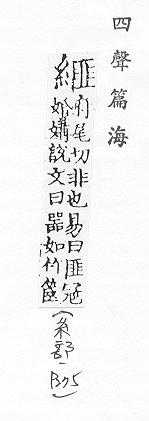 四聲篇海
府尾切非也易曰匪冦
婚媾說文曰噐如竹篋
(糸部